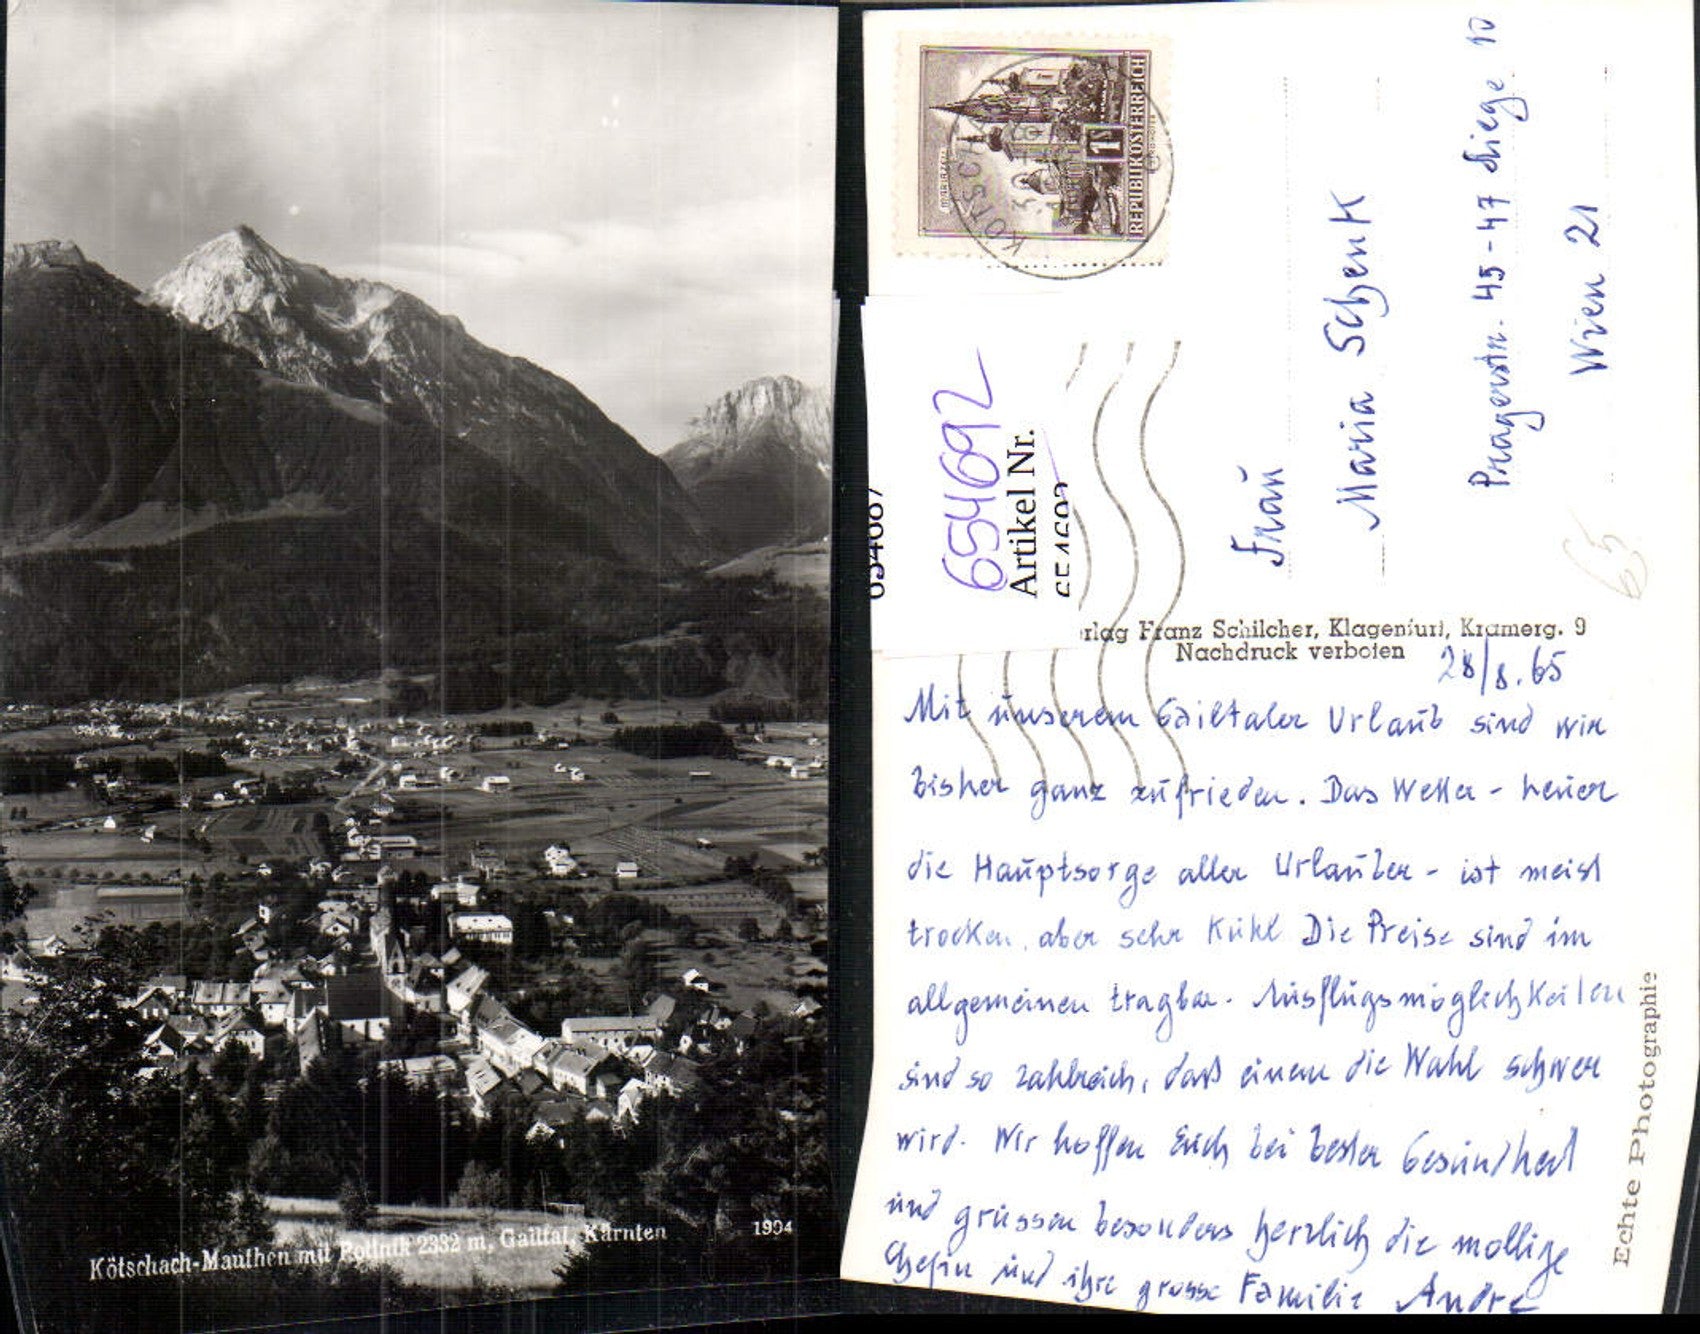 Kötschach-Mauthen mit Pollnik 2332 m, Gailtal, Kärnten
1994
MARIAZELL
1S
REPUBLIK ÖSTERREICH
KÖTSCH
654692
Artikel Nr.
Frau
Maria Schenk
Pragerstr. 45-47 Stiege 10
Wien 21
65
rlag Franz Schilcher, Klagenfurt, Kramerg. 9
Nachdruck verboten
28/8.65
Mit unserem Gailtaler Urlaub sind wir
bisher ganz zufrieden. Das Wetter - heuer
die Hauptsorge aller Urlauber - ist meist
trocken, aber sehr kühl. Die Preise sind im
allgemeinen tragbar. Ausflugsmöglichkeiten
sind so zahlreich, daß einem die Wahl schwer
wird. Wir hoffen Euch bei bester Gesundheit
und grüssen besonders herzlich die mollige
Chefin und ihre grosse Familie Andre
Echte Photographie